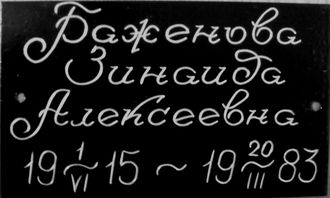 Баженова
Зинаида
Алексеевна
19 1/VI 15 ~ 19 20/III 83